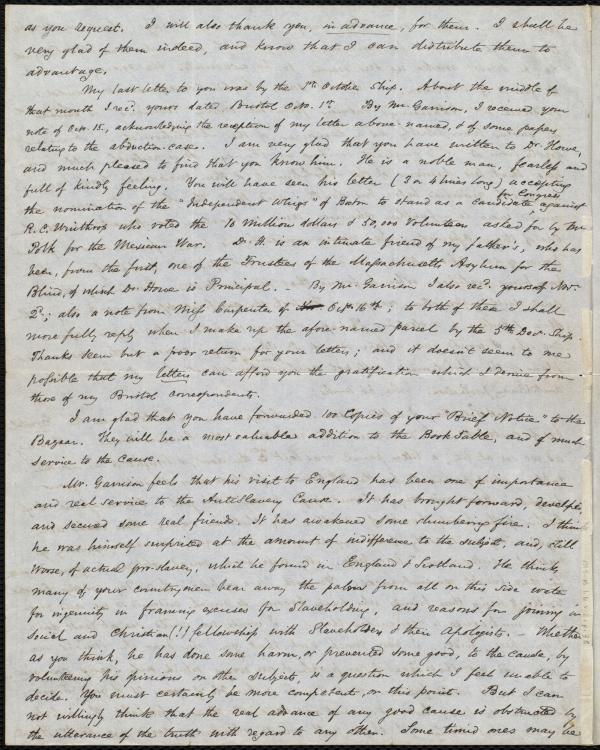 as you request. I will also thank you, in advance, for them. I shall be
very glad of them indeed, and know that I can distribute them to
advantage.
My last letter to you was by the 1st October Ship. About the middle of
that month I recd. yours dated Bristol Oct. 1st. By Mr. Garrison, I received your
note of Oct. 15, acknowledging the reception of my letter above named, & of some papers
relating to the abduction-case. I am very glad that you have written to Dr. Howe,
and much pleased to find that you know him. He is a noble man, fearless and
full of kindly feeling. You will have seen his letter (3 or 4 lines long) accepting
the nomination of the "Independent Whigs" of Boston to stand as a candidate for Congress, against
R. C. Winthrop who voted the 10 Million dollars & 50,000 Volunteers asked for by Mr.
Polk for the Mexican War. Dr. H. is an intimate friend of my father's, who has
been, from the first, one of the Trustees of the Massachusetts Asylum for the
Blind, of which Dr. Howe is Principal. – By Mr. Garrison I also recd. yours of Nov.
2d.; also a note from Miss Carpenter of Oct. 16th; to both of these I shall
more fully reply when I make up the afore-named parcel by the 5th Decr. Ship.
Thanks seem but a poor return for your letters; and it doesn't seem to me
possible that my letters can afford you the gratification which I derive from
those of my Bristol correspondents.
I am glad that you have forwarded 100 Copies of your "Brief Notice" to the
Bazaar. They will be a most valuable addition to the Book Table, and of much
service to the cause.
Mr. Garrison feels that his visit to England has been one of importance
and real service to the AntiSlavery Cause. It has brought forward, developed
and secured some real friends. It has awakened some slumbering fire. I think
he was himself surprised at the amount of indifference to the subject, and, still
worse, of actual pro-slavery, which he found in England & Scotland. He thinks
many of your countrymen bear away the palm from all on this side
for ingenuity in framing excuses for Slaveholding, and reasons for joining in
social and Christian (!) fellowship with Slaveholders & their Apologists. – Whether
as you think, he has done some harm, or prevented some good, to the cause, by
volunteering his opinions on other subjects, is a question which I feel unable to
decide. You must certainly be more competent, on this point. But I can
not willingly think that the real advance of any good cause is obstructed by
the utterance of the truth with regard to any other. Some timid ones may be